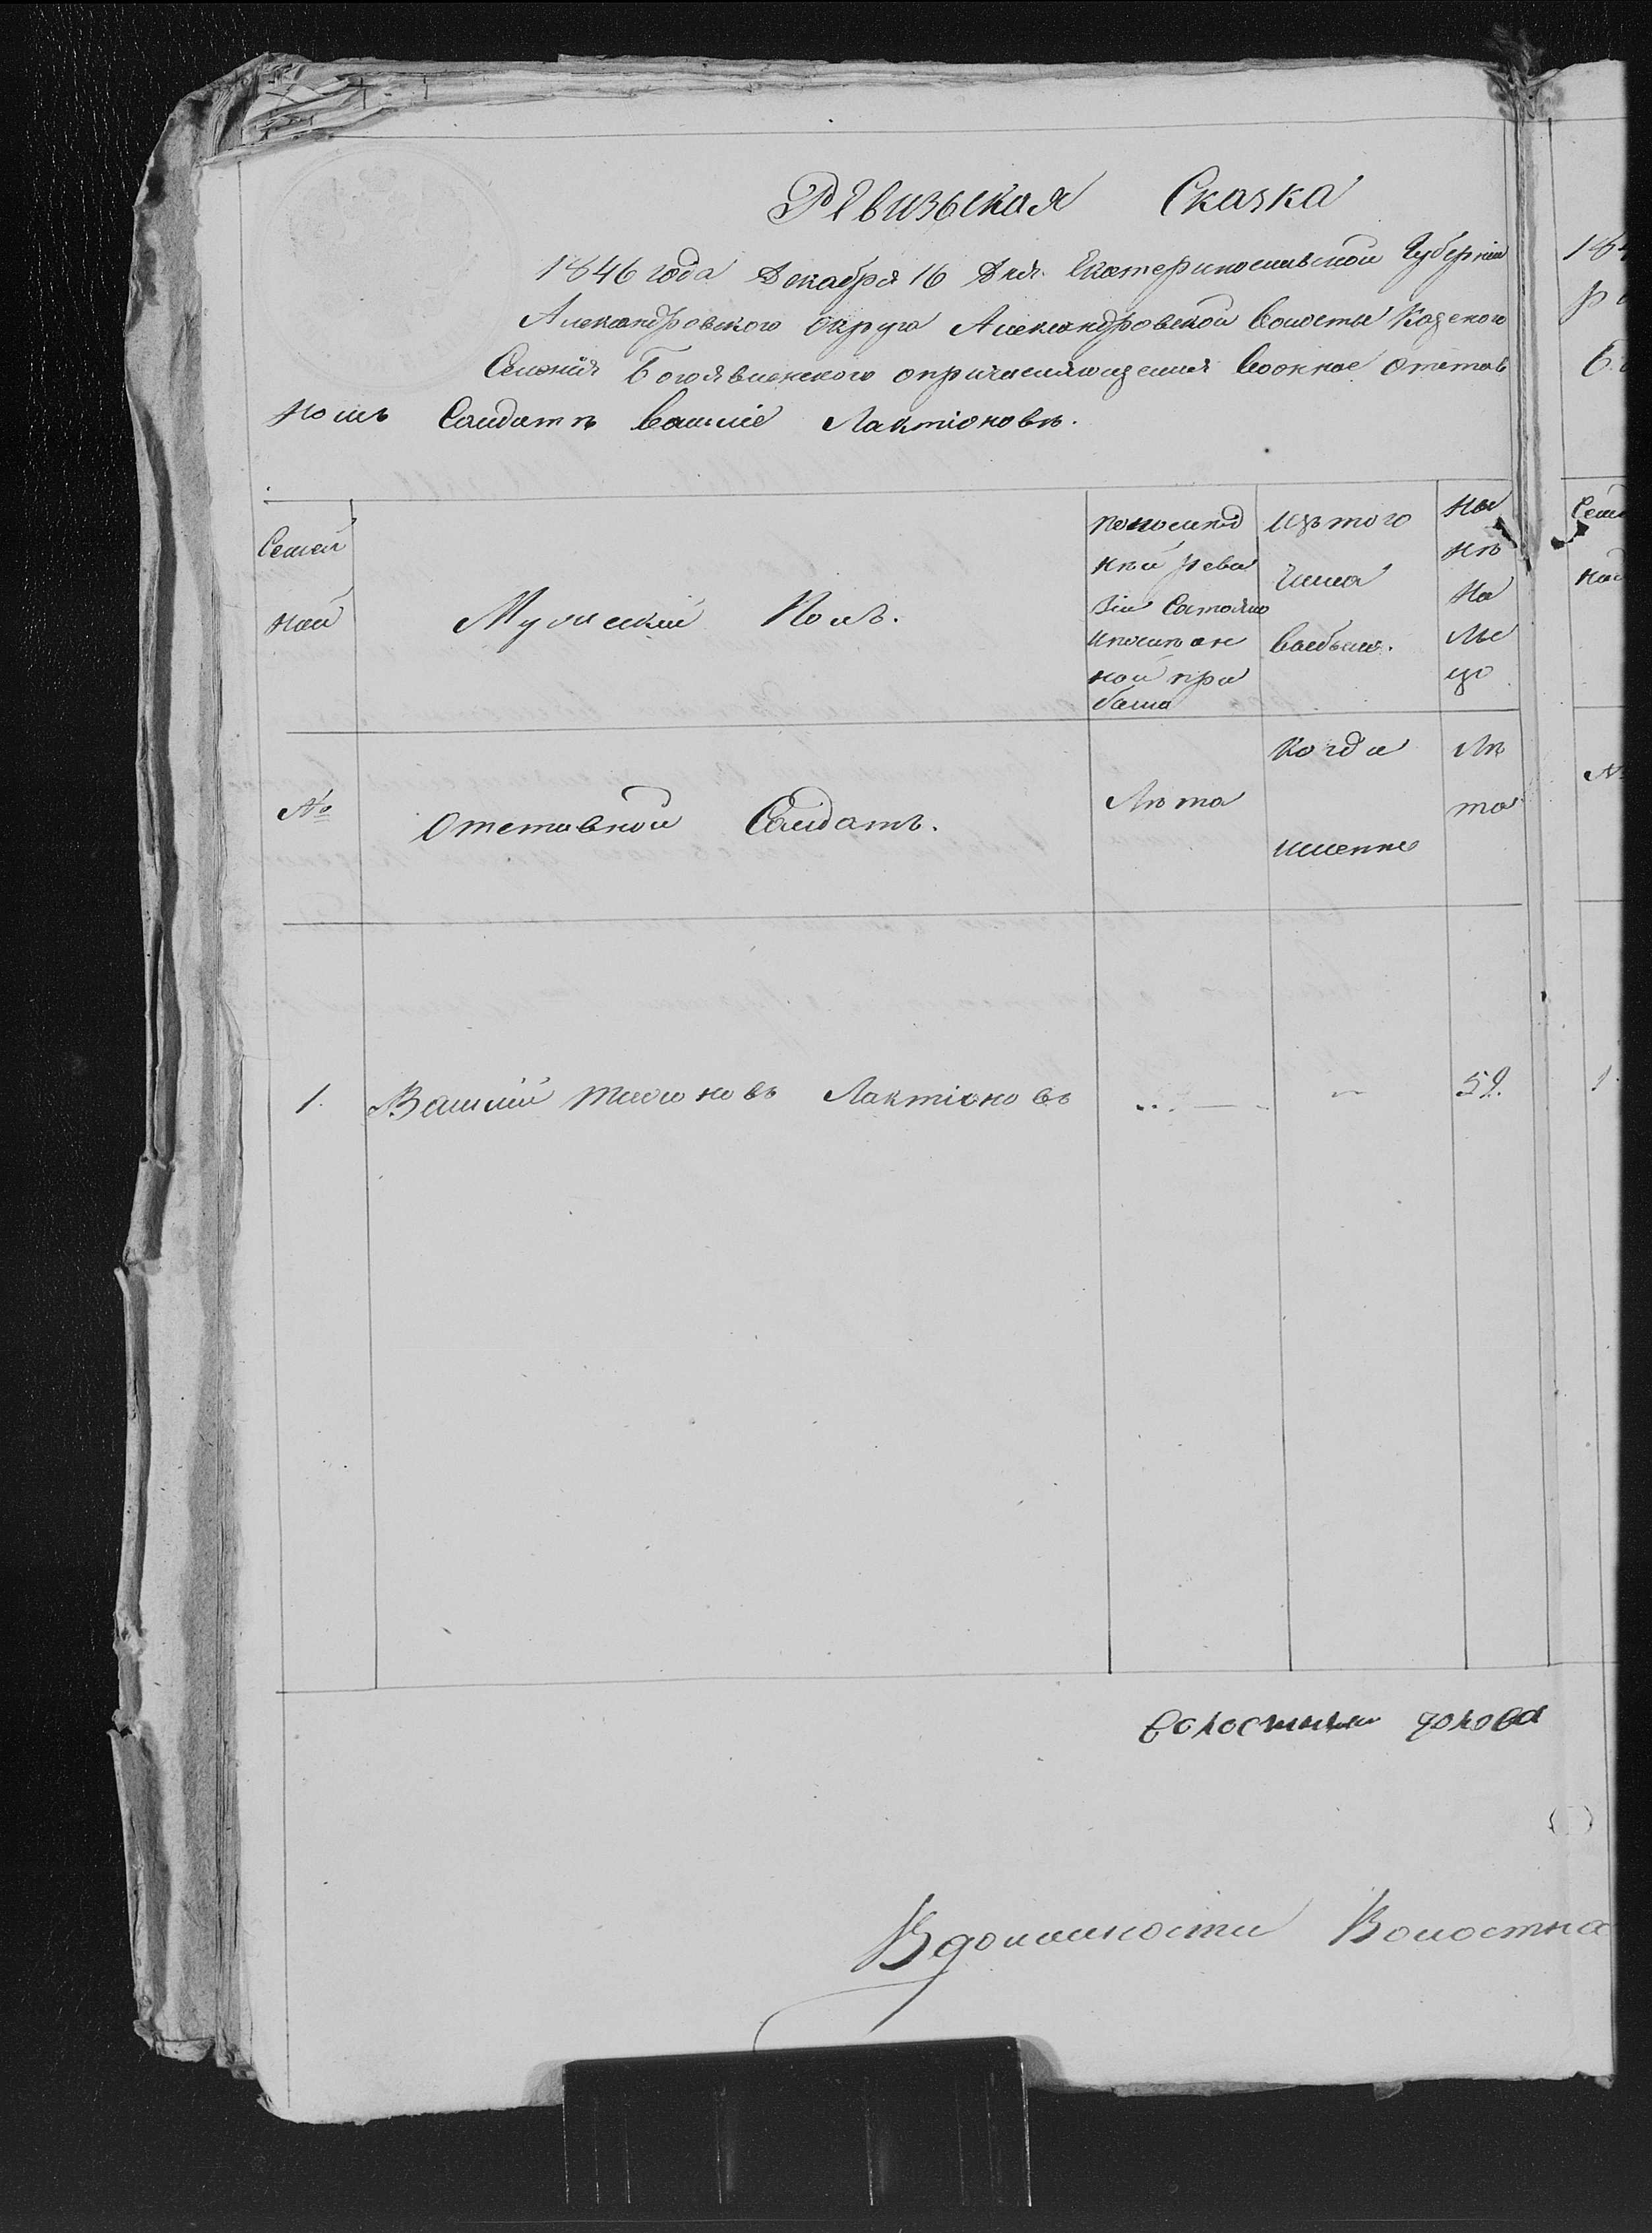 Ревизьская Сказка
1846 года Декабря 16 Дня. Екатеринославской Губерніи
Александровского округа Александровской волости Казеного
Селенія Богоявленского опричисляющемся военное отстав
номъ Солдатѣ Василіе Лактіоновѣ.
Семей
ной
Мужеский Полъ.
попослед
нѣй реви
зіи Состояло
ипослѣ он
ной при
было
Изътого
числа
выбыло.
Ны
нѣ
На
ли
цо
№
Отставной Солдатъ.
Лѣта
Когда
именно
Лѣ
та
1. Василий Тихоновъ Лактіоновъ 52.
Волостный голова
В должности Волостна
184
Семе
№
1